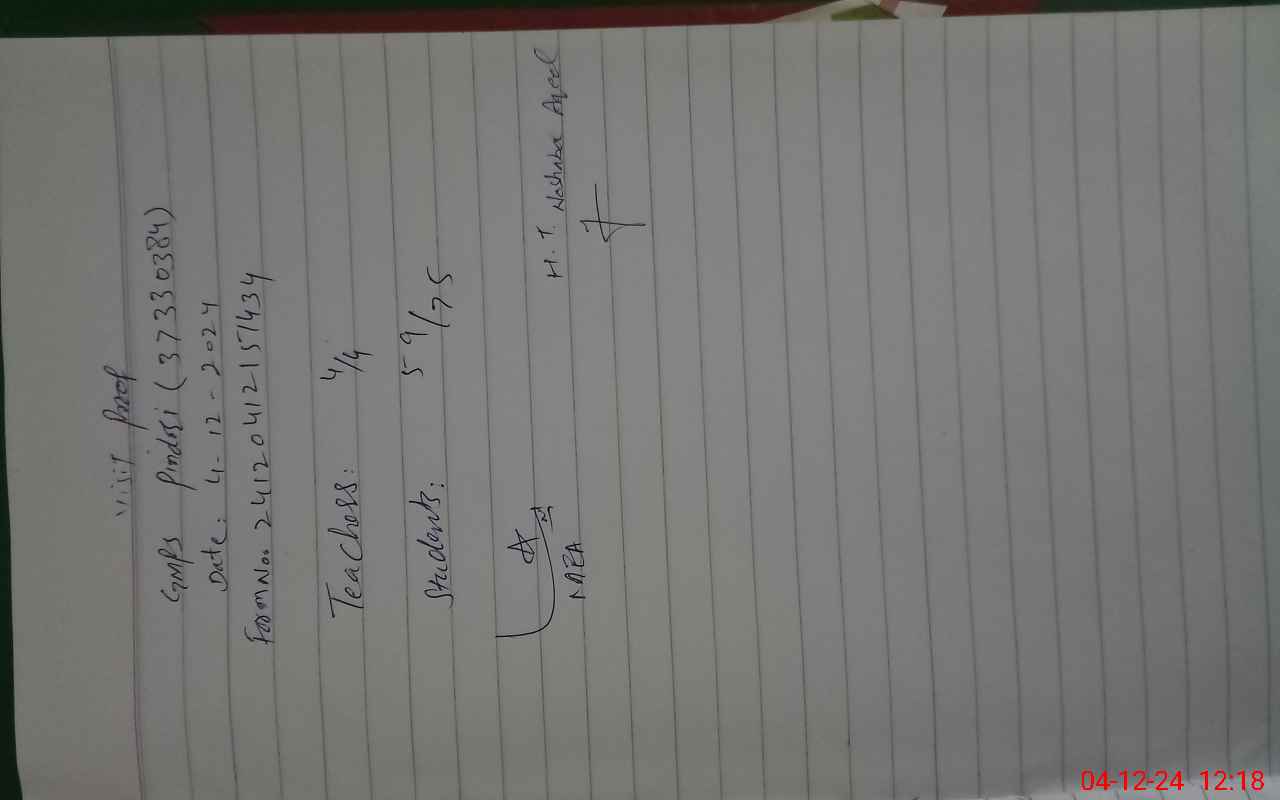 "Visit Proof
GMPS Pindori (37330384)
Date: 4-12-2024
Form No. 241204121151434
Teachers: 4/4
Students: 59/75
H.T. Nashaba Aqeel
MEA
04-12-24 12:18